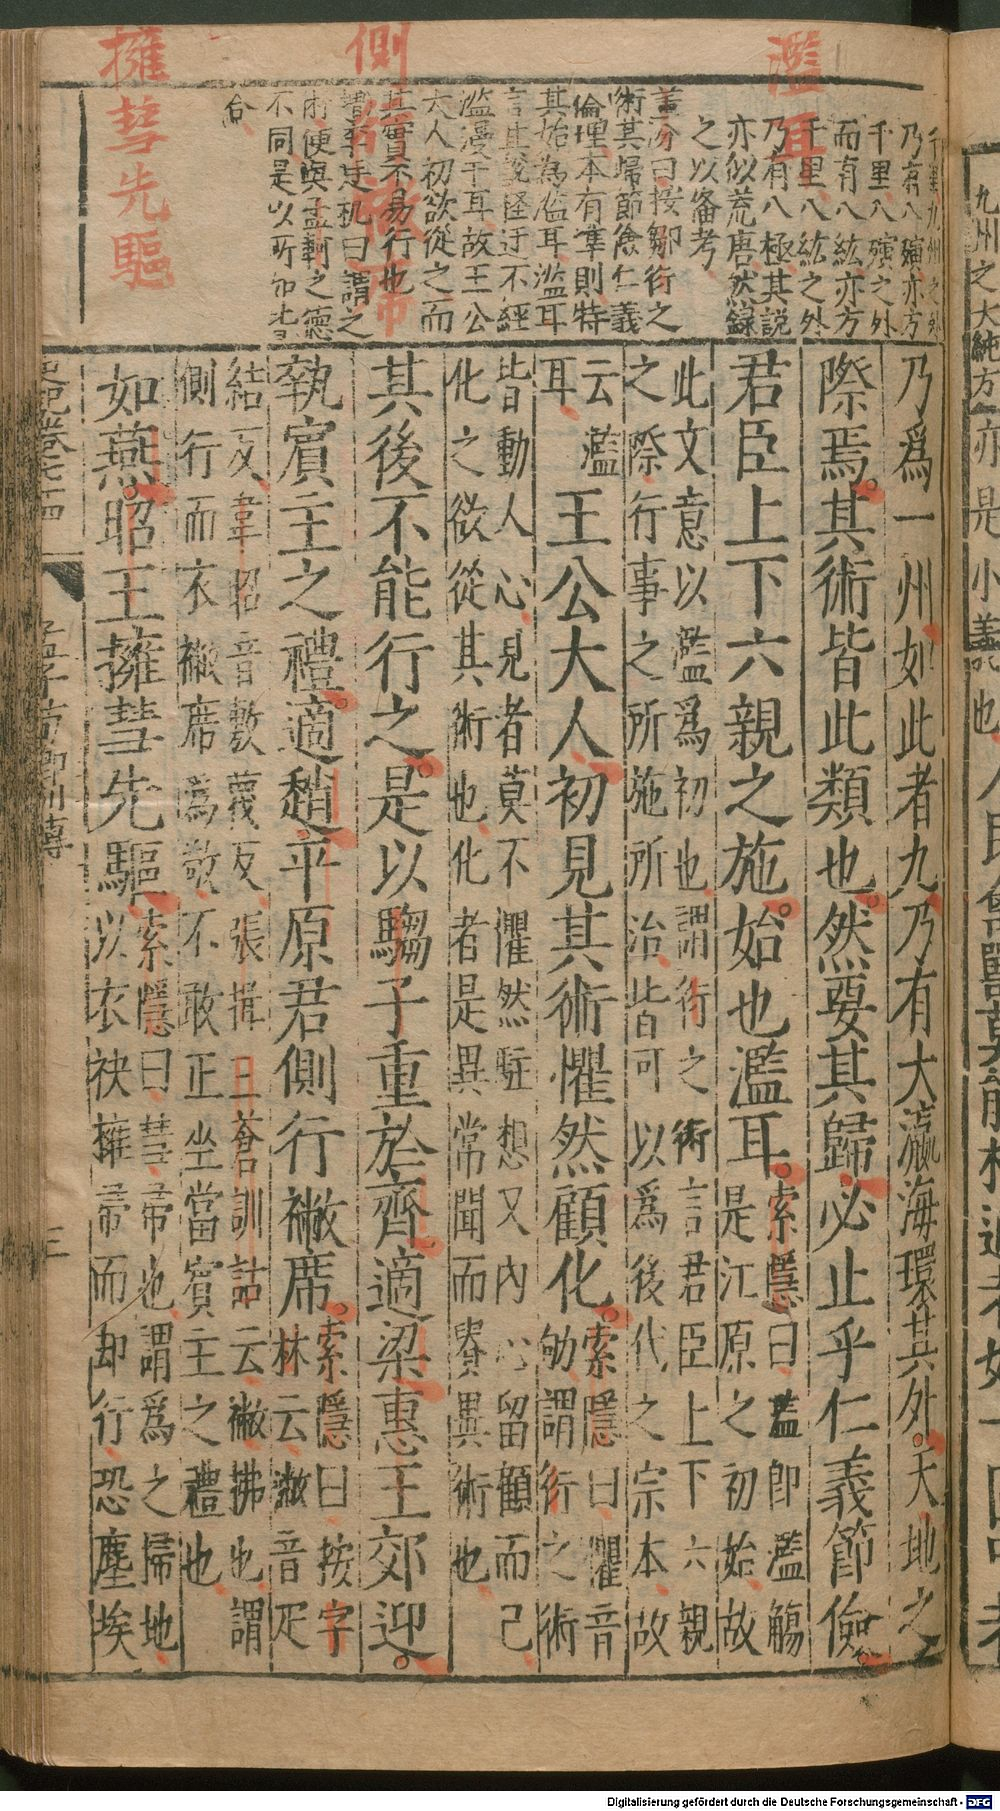 濫耳
側行襒席
擁彗先驅
千里九州之外
乃有八殥亦方
千里八殥之外
而有八紘亦方
千里八紘之外
乃有八極其説
亦似荒唐然錄
之以畨考
董份曰按鄒衍之
術其歸節儉仁義
倫理本有凖則特
其始為濫耳濫耳
言其説怪迂不經
濫漫于耳故王公
大人初欲從之而
其實不易行也
不同是以所如者
合
乃爲一州如此者九乃有大瀛海環其外天地之
際焉其術皆此類也然要其歸必止乎仁義節儉
君臣上下六親之施始也濫耳
索隱曰濫即濫觴
是江原之初始故
此文意以濫爲初也謂衍之術言君臣上下六親
之際行事之所施所治皆可以爲後代之宗本故
云濫
耳
王公大人初見其術懼然顧化
索隱曰懼音
劬謂衍之術
皆動人心見者莫不懼然駐想又內心留顧而己
化之欲從其術也化者是異常聞而賁異術也
其後不能行之是以騶子重於齊適梁惠王郊迎
執賓主之禮適趙平原君側行襒席
索隱曰按字
林云襒音疋
結反韋昭音敷蔑反張揖三蒼訓詁云襒拂也謂
側行而衣襒席為敬不敢正坐當賓主之禮也
如燕昭王擁彗先驅
索隱曰彗帚也謂爲之掃地
以衣袂擁帚而却行恐塵埃
史記卷七十四
孟子荀卿列傳
三
九州之大純方
亦是小義也
Digitalisierung gefördert durch die Deutsche Forschungsgemeinschaft - DFG